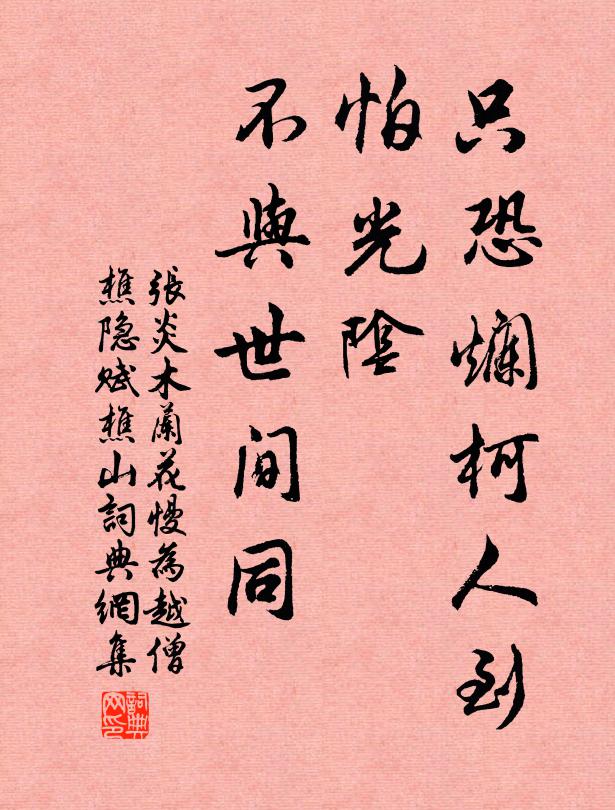 只恐爛柯人到
怕光陰
不與世間同
張炎木蘭花慢為越僧
樵隐賦樵山詞典網集
詞典
网印